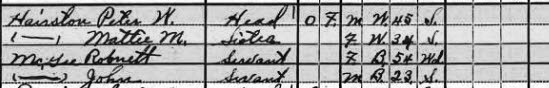 Hairston Peter W. Head O F. M W. 45 S.
(—) Mattie M. Sister F W. 34 S.
McGee Robnett Servant F B. 54 Wd.
(—) John Servant M B. 23 S.